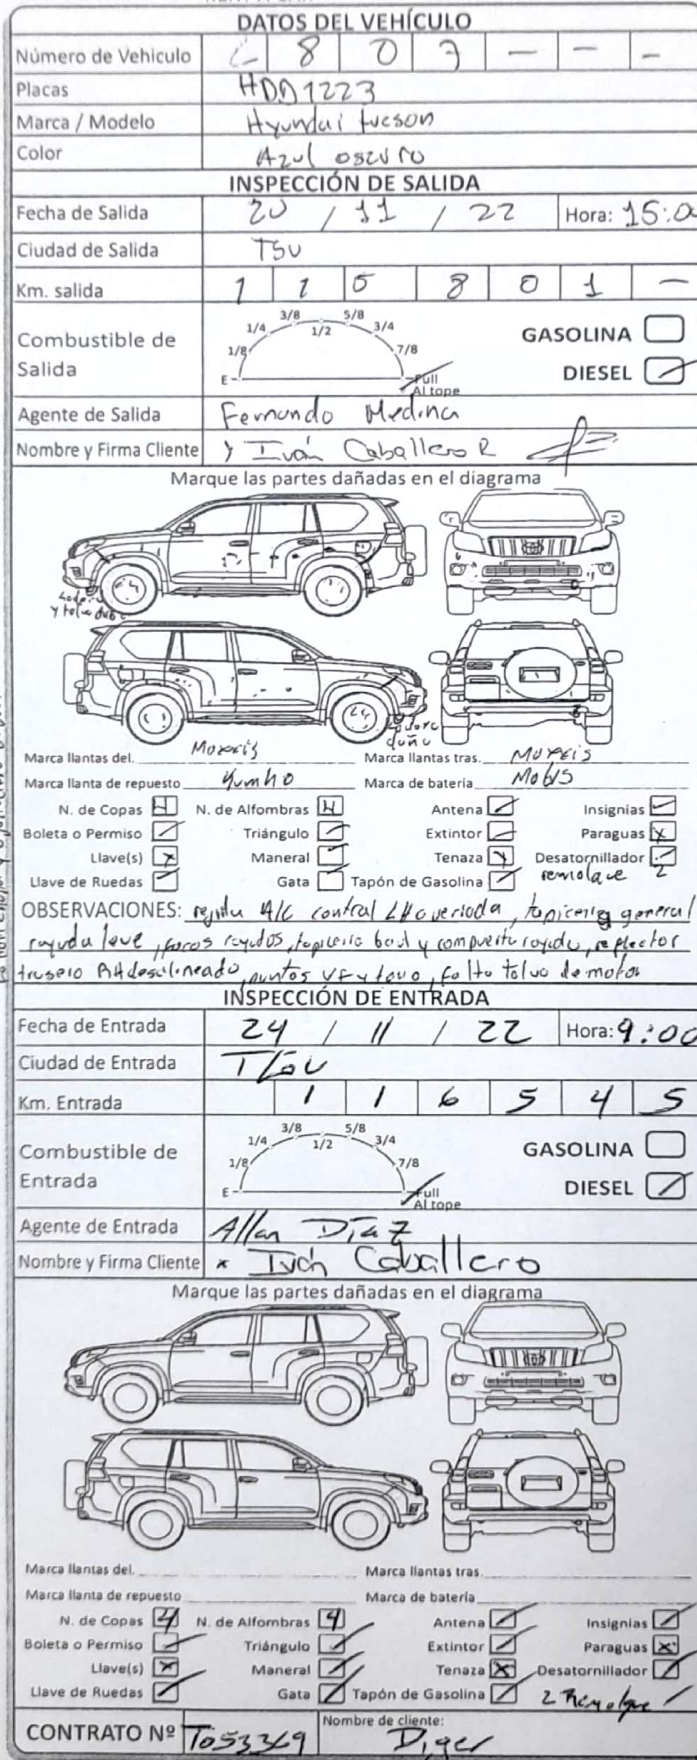 DATOS DEL VEHÍCULO
Número de Vehiculo 8 0 7 - - -
Placas HDD1223
Marca / Modelo Hyundai tucson
Color Azul oscuro
INSPECCIÓN DE SALIDA
Fecha de Salida 20 / 11 / 22 Hora: 15:00
Ciudad de Salida TGU
Km. salida 1 1 5 8 0 1 -
3/8 5/8
1/4 1/2 3/4
1/8 7/8
E Full
Al tope
Combustible de Salida
GASOLINA
DIESEL
Agente de Salida Fernando Medina
Nombre y Firma Cliente Iván Caballero R
Marque las partes dañadas en el diagrama
Marca llantas del. Maxxis Marca llantas tras. Maxxis
Marca llanta de repuesto Kumho Marca de bateria Mobis
N. de Copas 4 N. de Alfombras 4 Antena Insignias
Boleta o Permiso Triángulo Extintor Paraguas x
Llave(s) x Maneral Tenaza x Desatornillador
Llave de Ruedas Gata Tapón de Gasolina remolque 2
OBSERVACIONES: A/C central general
rayuda leve, focos rayados, y compuerta reflector
trasero RH desalineado, puntos falta de motor
INSPECCIÓN DE ENTRADA
Fecha de Entrada 24 / 11 / 22 Hora: 9:00
Ciudad de Entrada TGU
Km. Entrada 1 1 6 5 4 5
3/8 5/8
1/4 1/2 3/4
1/8 7/8
E Full
Al tope
Combustible de Entrada
GASOLINA
DIESEL
Agente de Entrada Allan Díaz
Nombre y Firma Cliente x Iván Caballero
Marque las partes dañadas en el diagrama
Marca llantas del. Marca llantas tras.
Marca llanta de repuesto Marca de batería
N. de Copas 4 N. de Alfombras 4 Antena Insignias
Boleta o Permiso Triángulo Extintor Paraguas x
Llave(s) x Maneral Tenaza x Desatornillador
Llave de Ruedas Gata Tapón de Gasolina 2 Remolque
CONTRATO Nº T053369 Nombre de cliente: Diger